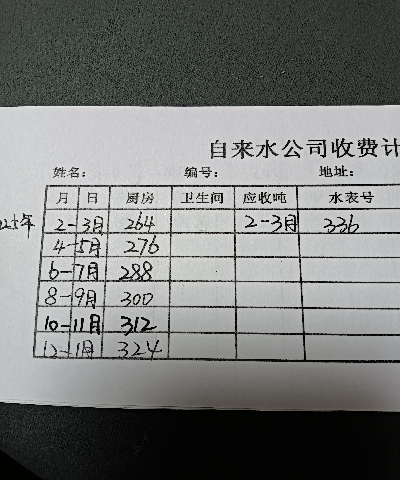 自来水公司收费计
姓名： 编号： 地址：
月 日 厨房 卫生间 应收吨 水表号
25年 2-3月 264 2-3月 336
4-5月 276
6-7月 288
8-9月 300
10-11月 312
12-1月 324